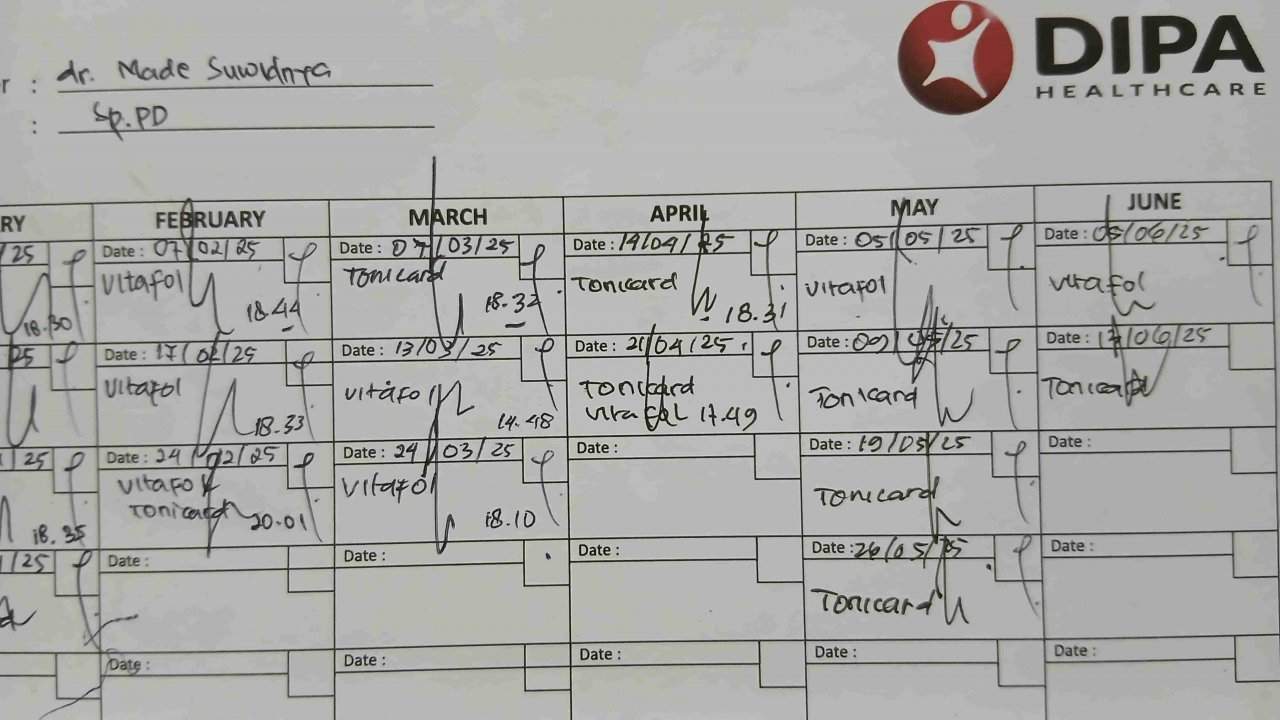 DIPA
HEALTHCARE
r : dr. Made Suwidnya
: Sp.PD
RY FEBRUARY MARCH APRIL MAY JUNE
/25 Date : 07/02/25 Date : 07/03/25 Date : 14/04/25 Date : 05/05/25 Date : 05/06/25
Vitafol Tonicard Tonicard Vitafol Vitafol
18.30 18.44 18.32 18.31
25 Date : 17/02/25 Date : 13/03/25 Date : 21/04/25 Date : 09/05/25 Date : 17/06/25
Vitafol Vitafol Tonicard Tonicard Tonicard
18.33 14.48 Vitafol 17.49
/25 Date : 24/02/25 Date : 24/03/25 Date : Date : 19/05/25 Date :
Vitafol Vitafol Tonicard
Tonicard
18.35 20.01 18.10
/25 Date : Date : Date : Date : 26/05/25 Date :
Tonicard
Date : Date : Date : Date : Date :